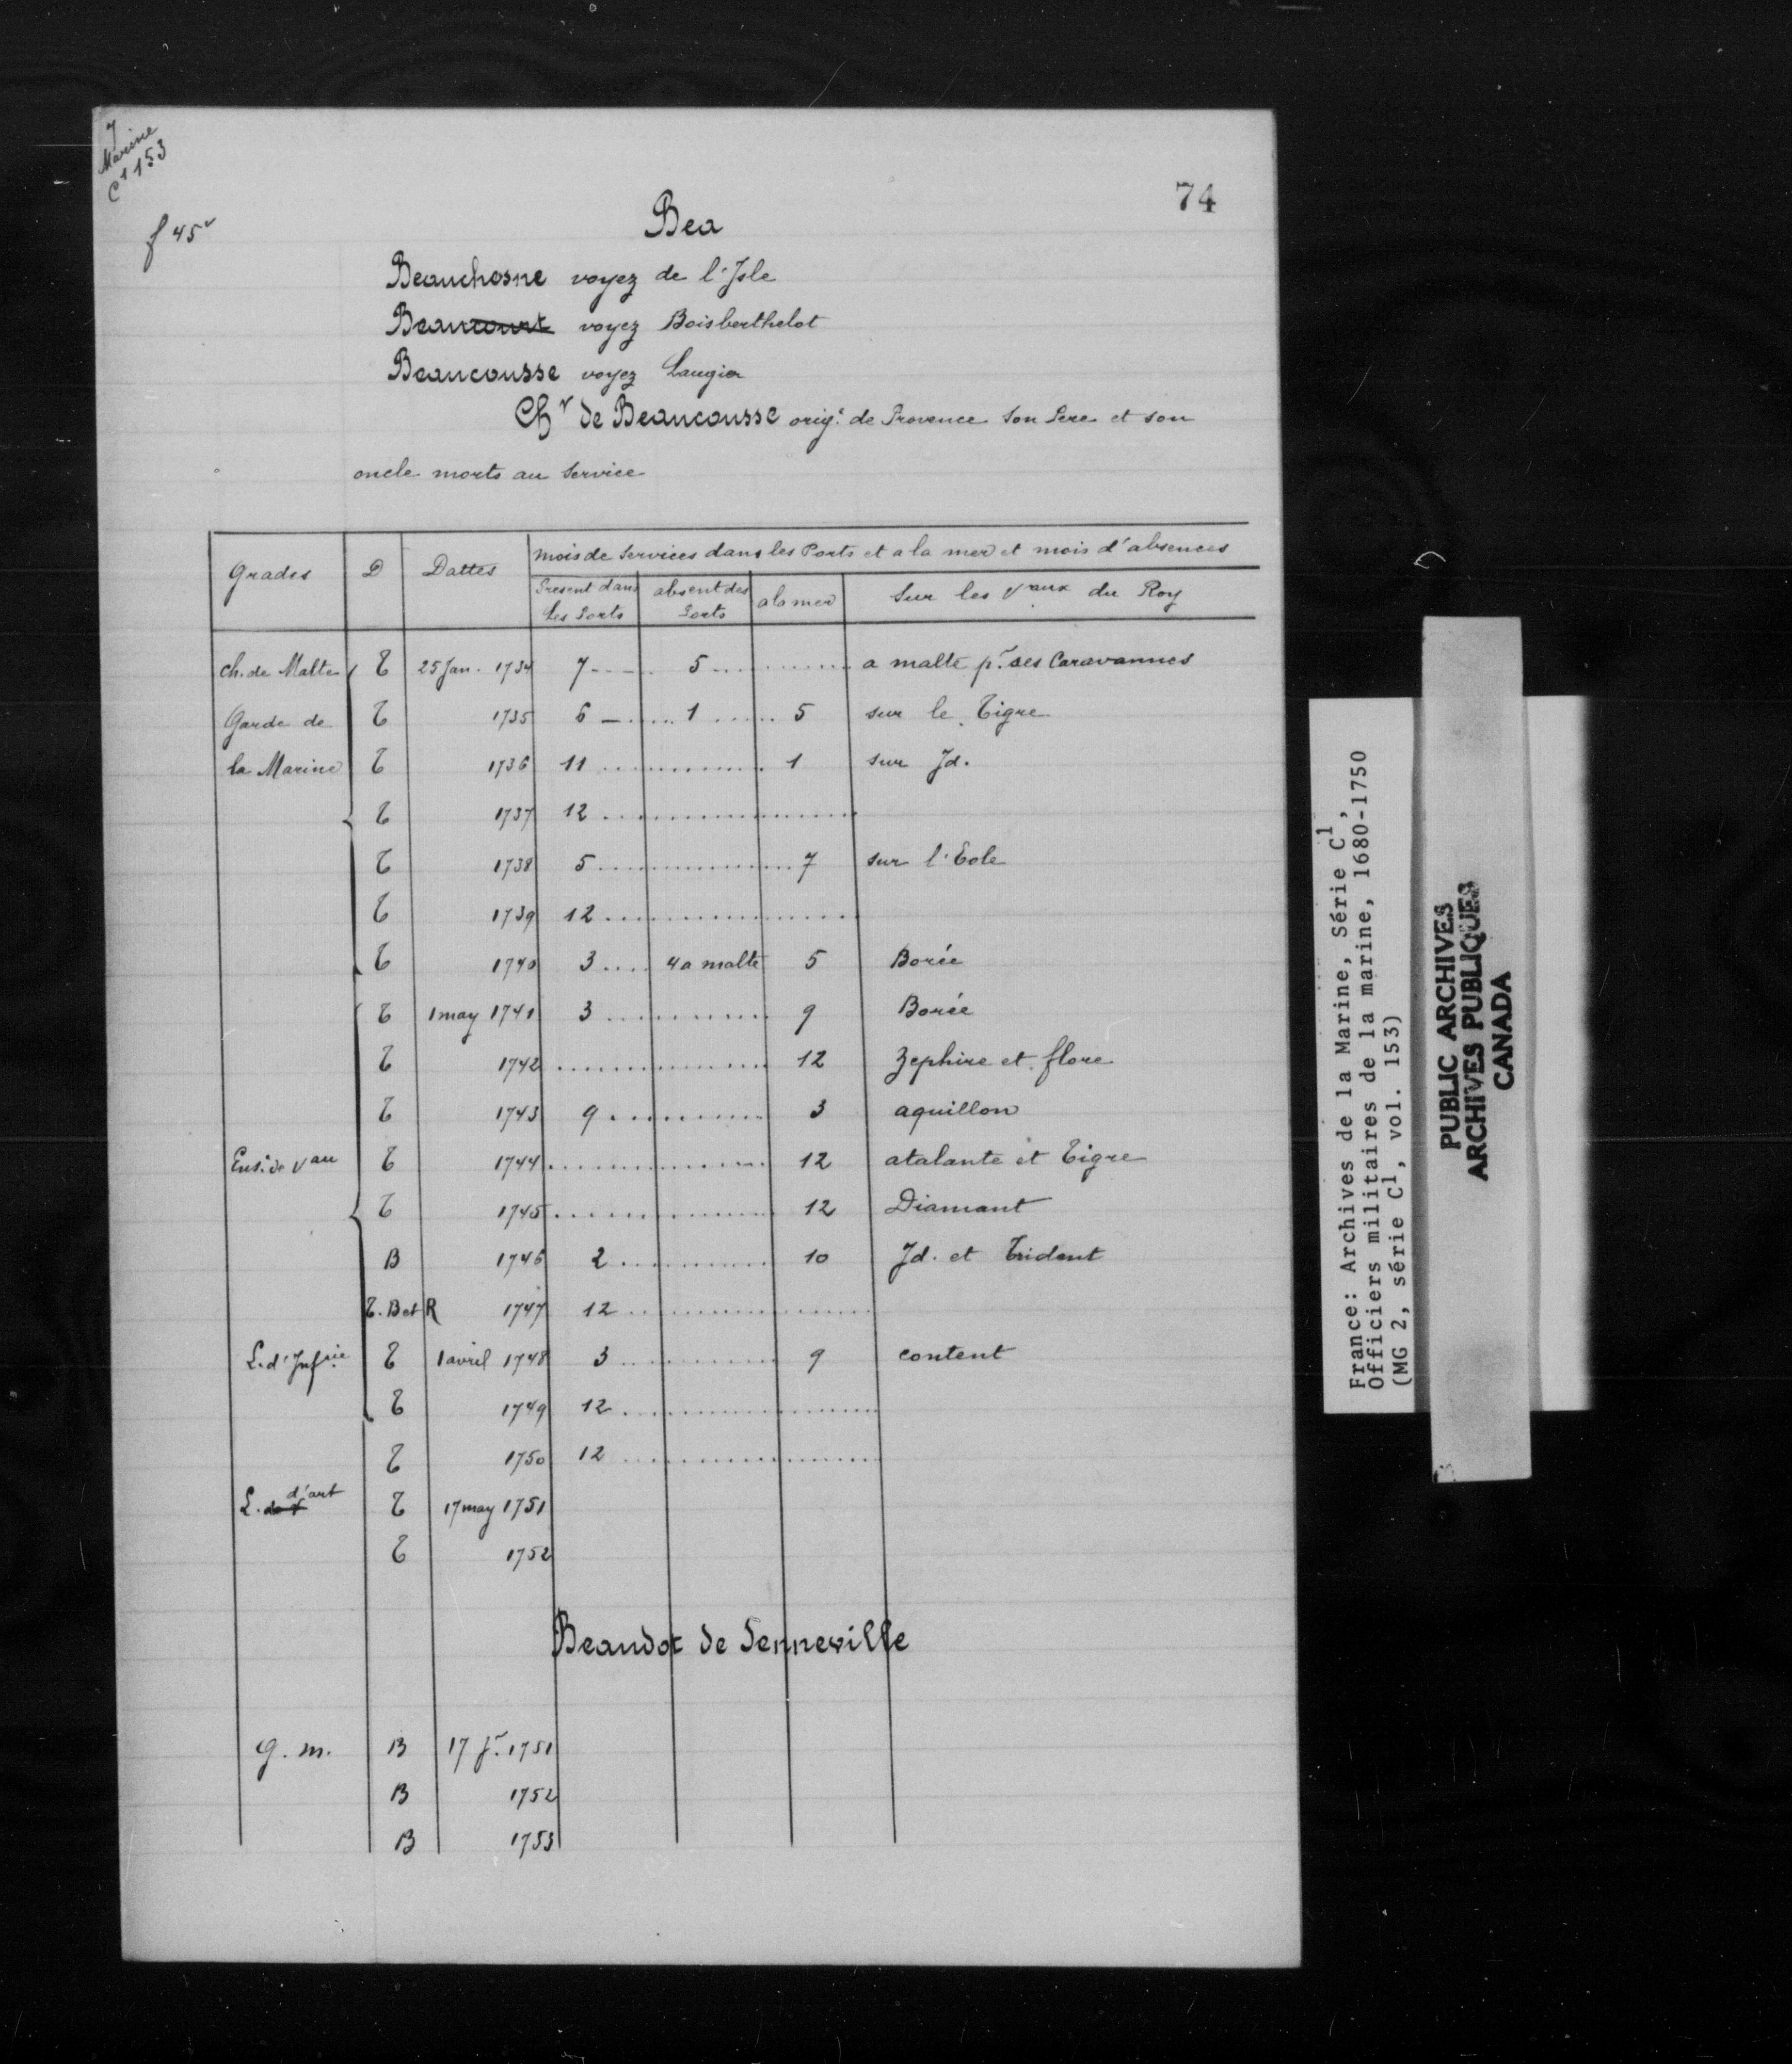 7
Marine
C1 153
f 45v
74
Bea
Beauchosne voyez de l'Isle
Beaucourt voyez Boisberthelot
Beaucousse voyez Laugier
Chr de Beaucousse orig.e de Provence Son Pere et son
oncle morts au Service
Grades D Dattes mois de Services dans les Ports et a la mer et mois d'absences
Present dans les Ports absent des Ports a la mer Sur les Vaux du Roy
ch. de Malte T 25 Jan. 1734 7 5 a malte pr ses Caravannes
Garde de T 1735 6 1 5 sur le Tigre
la Marine T 1736 11 1 sur Id.
T 1737 12
T 1738 5 7 sur l'Eole
T 1739 12
T 1740 3 4 a malte 5 Borée
T 1 may 1741 3 9 Borée
T 1742 12 Zephire et flore
T 1743 9 3 aquillon
Ens. de Vau T 1744 12 atalante et Tigre
T 1745 12 Diamant
B 1746 2 10 Id. et Trident
T. B et R 1747 12
L. d'Infrie T 1 avril 1748 3 9 content
T 1749 12
T 1750 12
L. de V d'art T 17 may 1751
T 1752
Beaudot de Senneville
g. m. B 17 fr. 1751
B 1752
B 1753
France: Archives de la Marine, Série C1,
Officiers militaires de la marine, 1680-1750
(MG 2, série C1, vol. 153)
PUBLIC ARCHIVES
ARCHIVES PUBLIQUES
CANADA